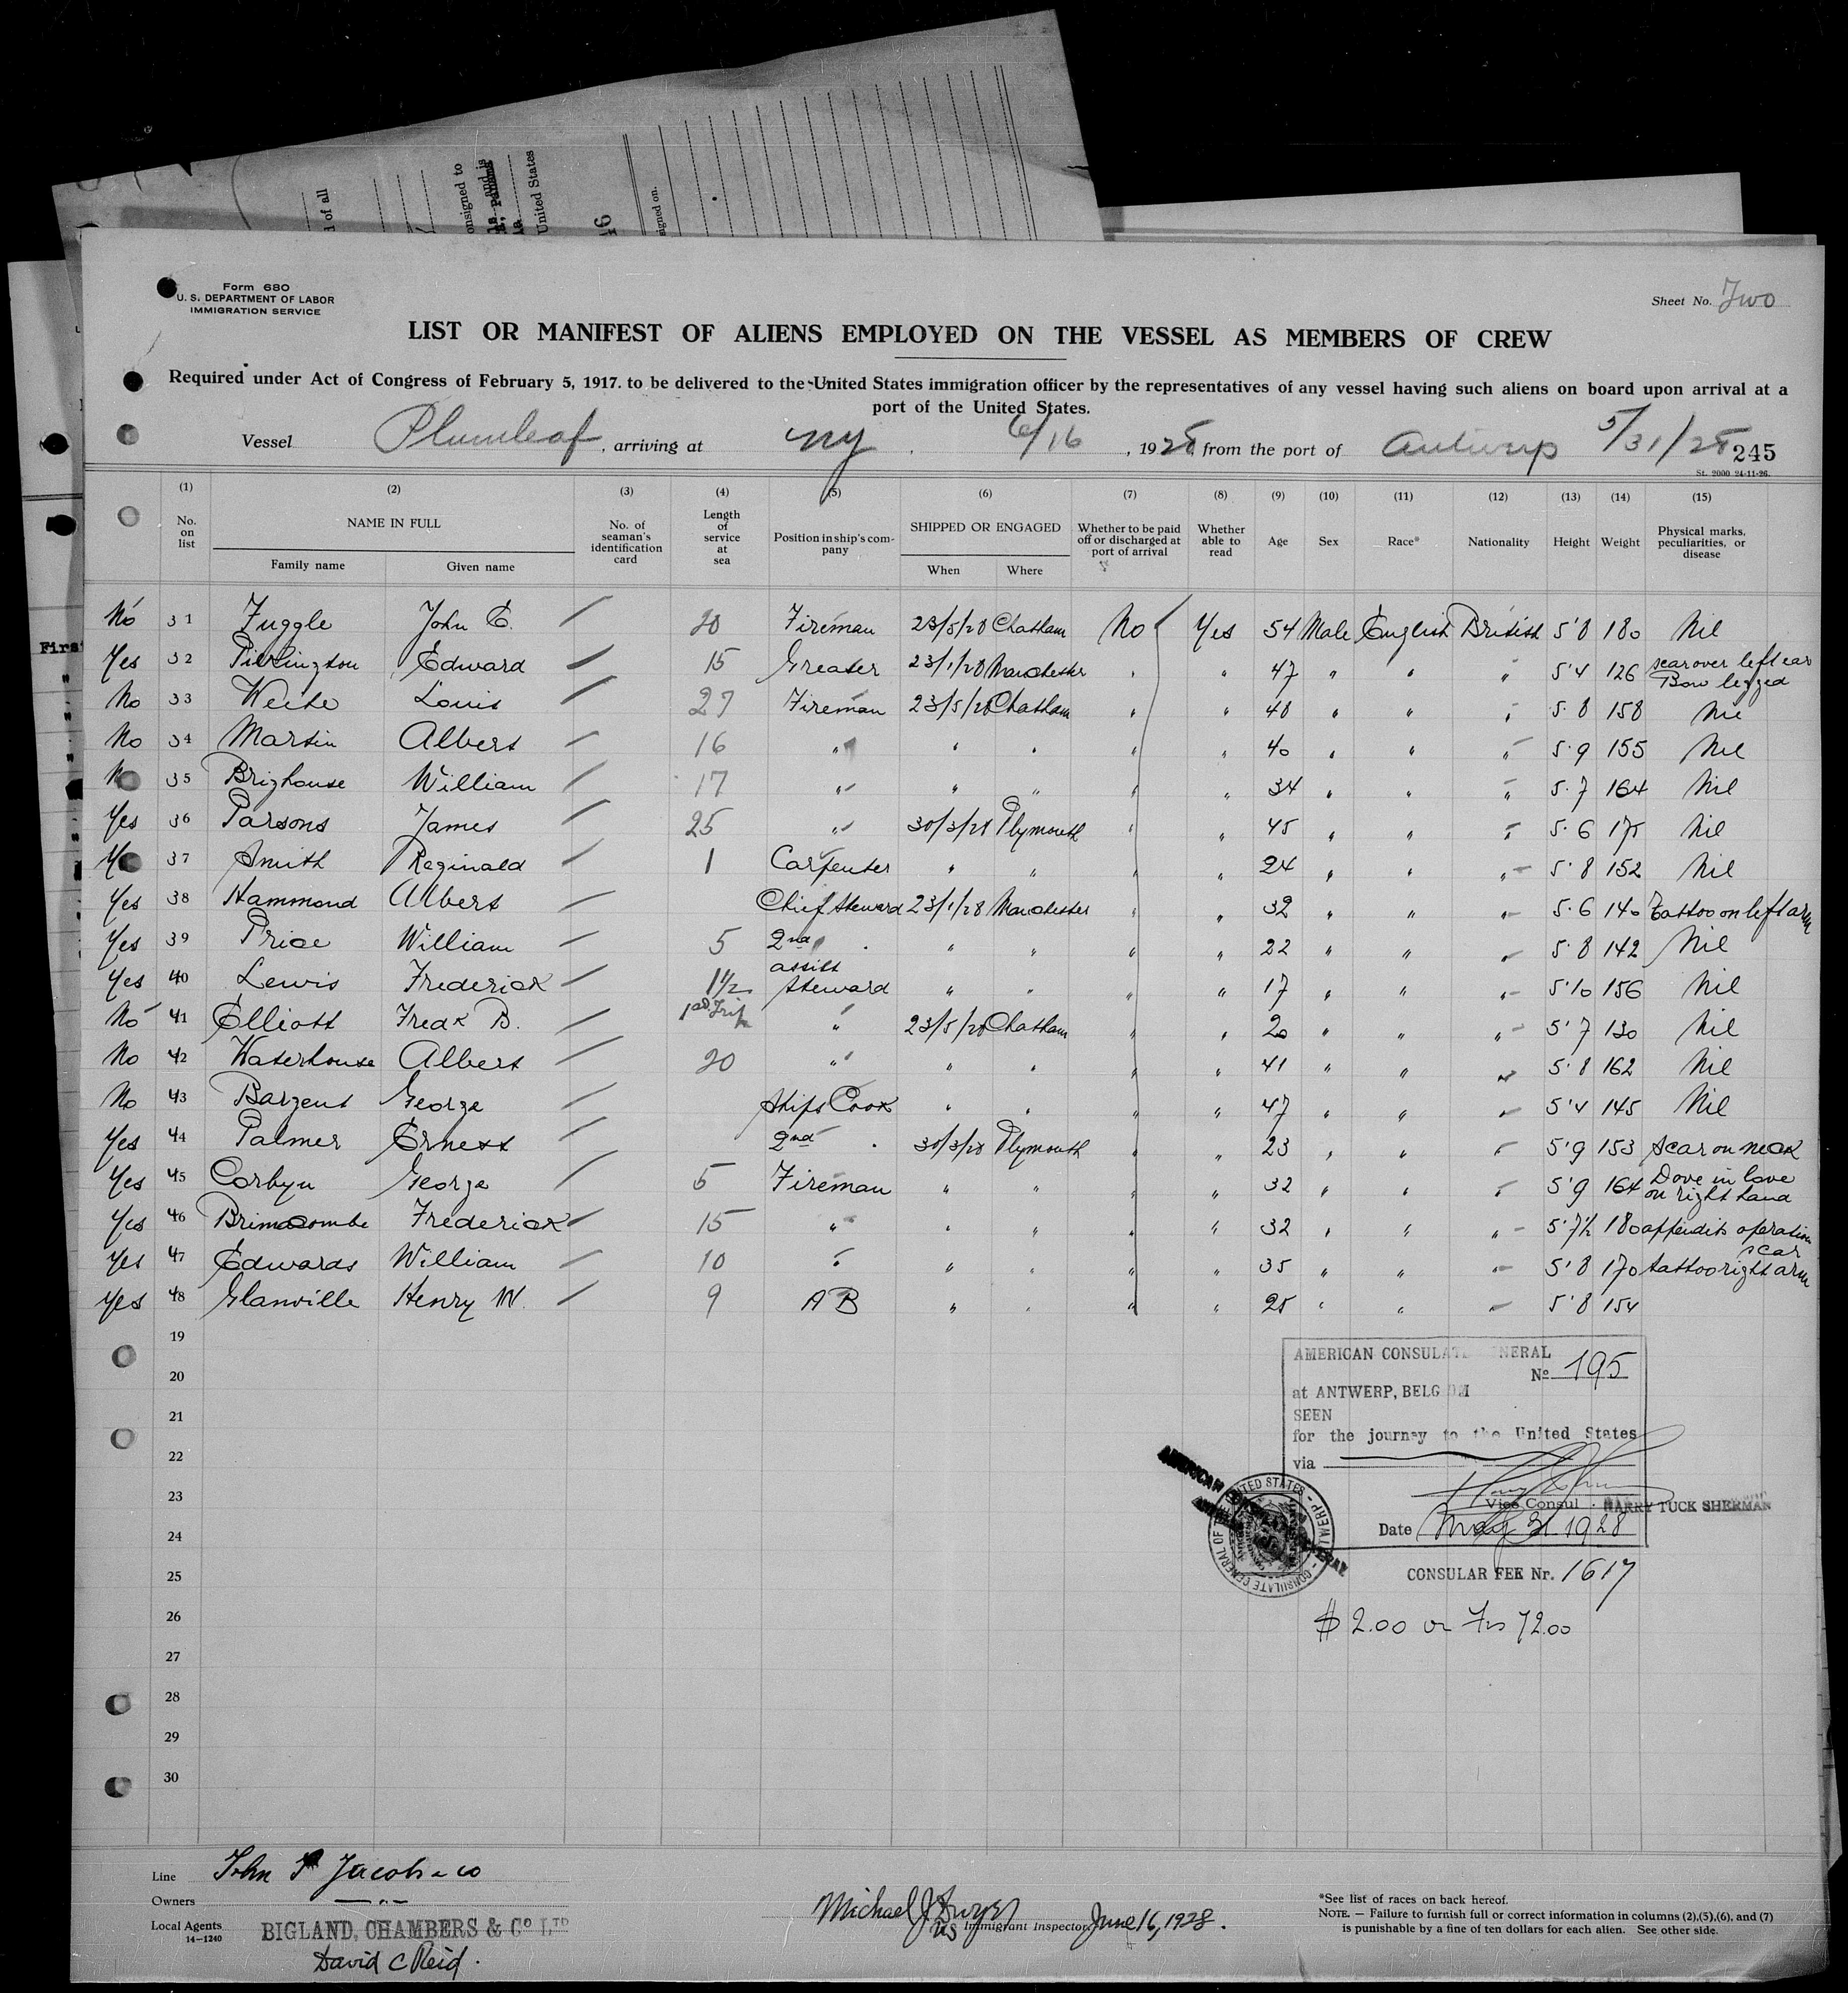 d of all
onsigned to
ls. and is
United States
46
signed on.
Form 680
U. S. DEPARTMENT OF LABOR
IMMIGRATION SERVICE
Sheet No. Two
LIST OR MANIFEST OF ALIENS EMPLOYED ON THE VESSEL AS MEMBERS OF CREW
Required under Act of Congress of February 5, 1917. to be delivered to the United States immigration officer by the representatives of any vessel having such aliens on board upon arrival at a
port of the United States.
Vessel Plumleaf, arriving at NY. 6/16, 1928 from the port of Antwerp 5/31/28 245
St. 2000 24-11-26.
(1) (2) (3) (4) (5) (6) (7) (8) (9) (10) (11) (12) (13) (14) (15)
No. on list NAME IN FULL No. of seaman's identification card Length of service at sea Position in ship's company SHIPPED OR ENGAGED Whether to be paid off or discharged at port of arrival Whether able to read Age Sex Race* Nationality Height Weight Physical marks, peculiarities, or disease
Family name Given name When Where
No 31 Fuggle John E. 20 Fireman 23/5/28 Chatham No Yes 54 Male English British 5'8 180 Nil
Yes 32 Edward 15 Greaser 23/1/28 Manchester " " 47 " " " 5'4 126 scar over left ear Bow legged
No 33 Louis 27 Fireman 23/5/28 Chatham " " 48 " " " 5.8 158 Nil
No 34 Martin Albert 16 " " " " " 40 " " " 5.9 155 Nil
No 35 Brighouse William 17 " " " " " 34 " " " 5.7 164 Nil
Yes 36 Parsons James 25 " 30/3/28 Plymouth " " 45 " " " 5.6 175 Nil
37 Smith Reginald 1 Carpenter " " " " 24 " " " 5'8 152 Nil
Yes 38 Hammond Albert Chief Steward 23/1/28 Manchester " " 32 " " " 5.6 140 Tattoo on left arm
Yes 39 Price William 5 2nd " " " " " 22 " " " 5'8 142 Nil
Yes 40 Lewis Frederick 1 1/2 assist Steward " " " " 17 " " " 5'10 156 Nil
No 41 Elliott Fredk B. 1st Trip " 23/5/28 Chatham " " 20 " " " 5'7 130 Nil
No 42 Waterhouse Albert 20 " " " " " 41 " " " 5'8 162 Nil
No 43 Bargent George Ships Cook " " " " 47 " " " 5'4 145 Nil
Yes 44 Palmer Ernest 2nd " 30/3/28 Plymouth " " 23 " " " 5'9 153 Scar on neck
Yes 45 Corbyn George 5 Fireman " " " " 32 " " " 5'9 164 Dove in love on right hand
Yes 46 Brimacombe Frederick 15 " " " " " 32 " " " 5'7½ 180 appendix operation scar
Yes 47 Edwards William 10 " " " " " 35 " " " 5'8 170 tattoo right arm
Yes 48 Glanville Henry W. 9 A B " " " " 25 " " " 5'8 154
19
20
21
22
23
24
25
26
27
28
29
30
AMERICAN CONSULATE GENERAL
No 195
at ANTWERP, BELGIUM
SEEN
for the journey to the United States
via
Vice Consul. HARRY TUCK SHERMAN
Date May 31 1928
CONSULAR FEE Nr. 1617
$ 2.00 or Frs 72.00
Line John I Jacobs & co
Owners "
Local Agents BIGLAND, CHAMBERS & Co LTD
14-1240
David C Reid.
Michael J Dwyer
US Immigrant Inspector June 16, 1928.
*See list of races on back hereof.
NOTE. — Failure to furnish full or correct information in columns (2),(5),(6), and (7)
is punishable by a fine of ten dollars for each alien. See other side.